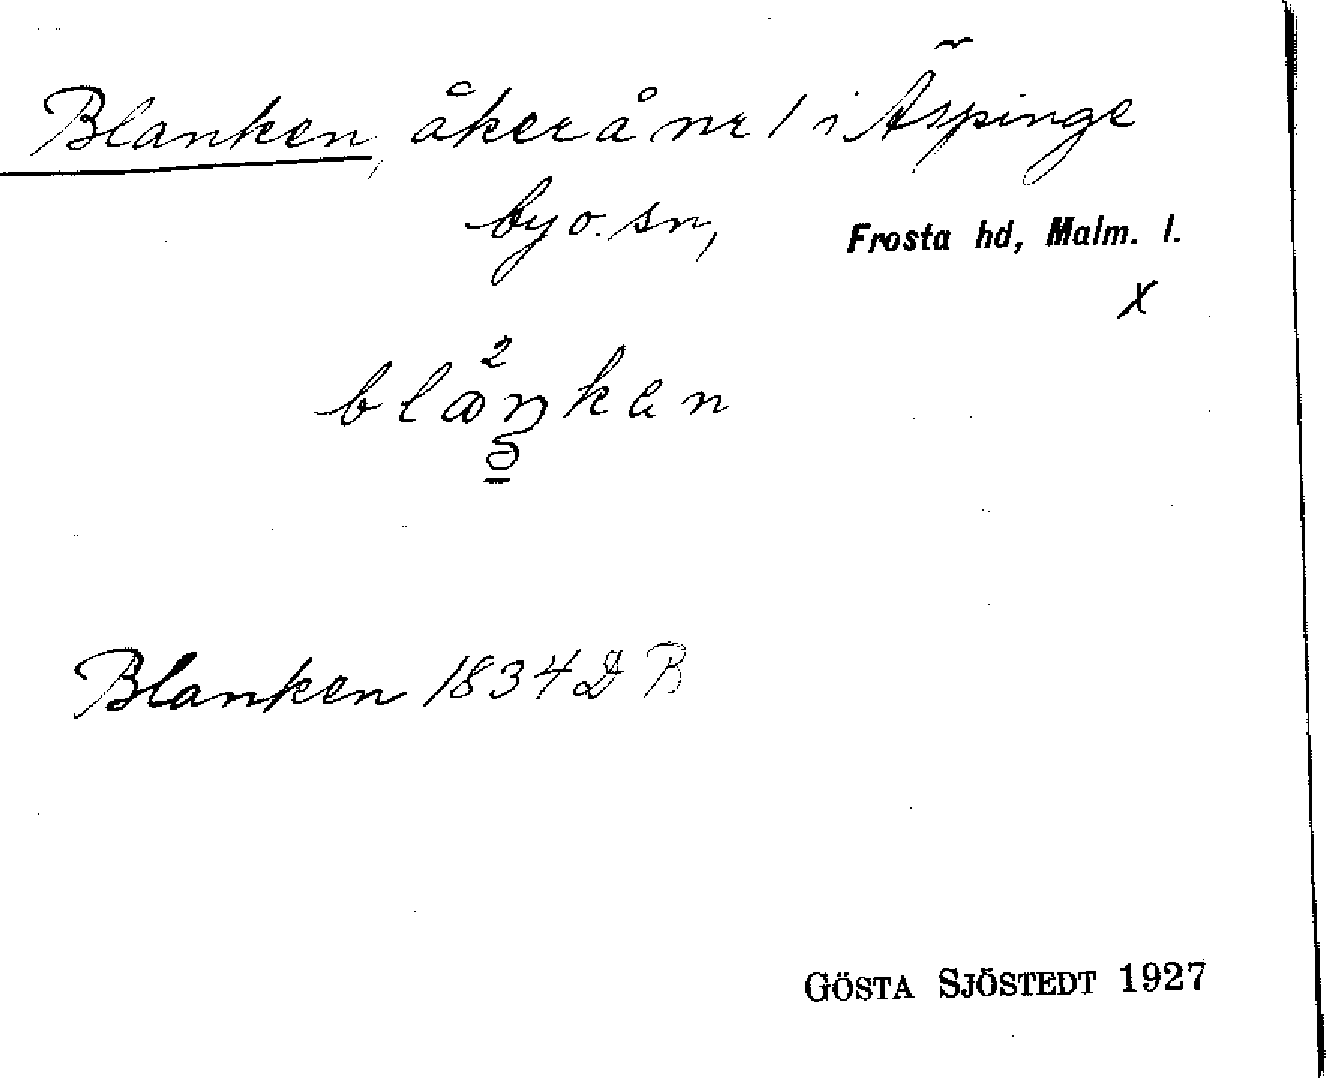 Blanken, åker å nr 1 i Äspinge
by o. sn, Frosta hd, Malm. l.
x
Blanken 1834 D B
GÖSTA SJÖSTEDT 1927